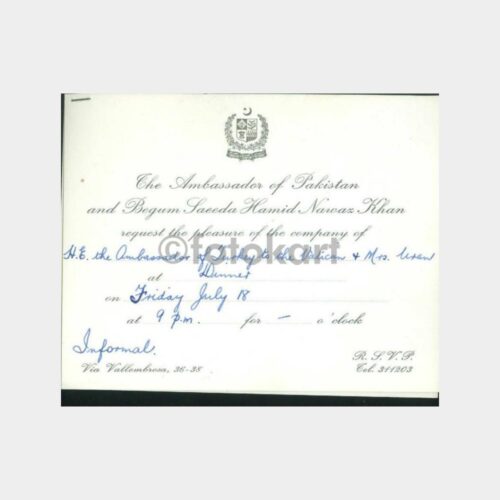 The Ambassador of Pakistan
and Begum Saeeda Hamid Nawaz Khan
request the pleasure of the company of
H.E. the Ambassador of Turkey to the Vatican & Mrs. Uran
©fotokart
at Dinner
on Friday July 18
at 9 p.m. for — o'clock
Informal.
R.S.V.P.
Via Vallombrosa, 36-38
Tel. 311203